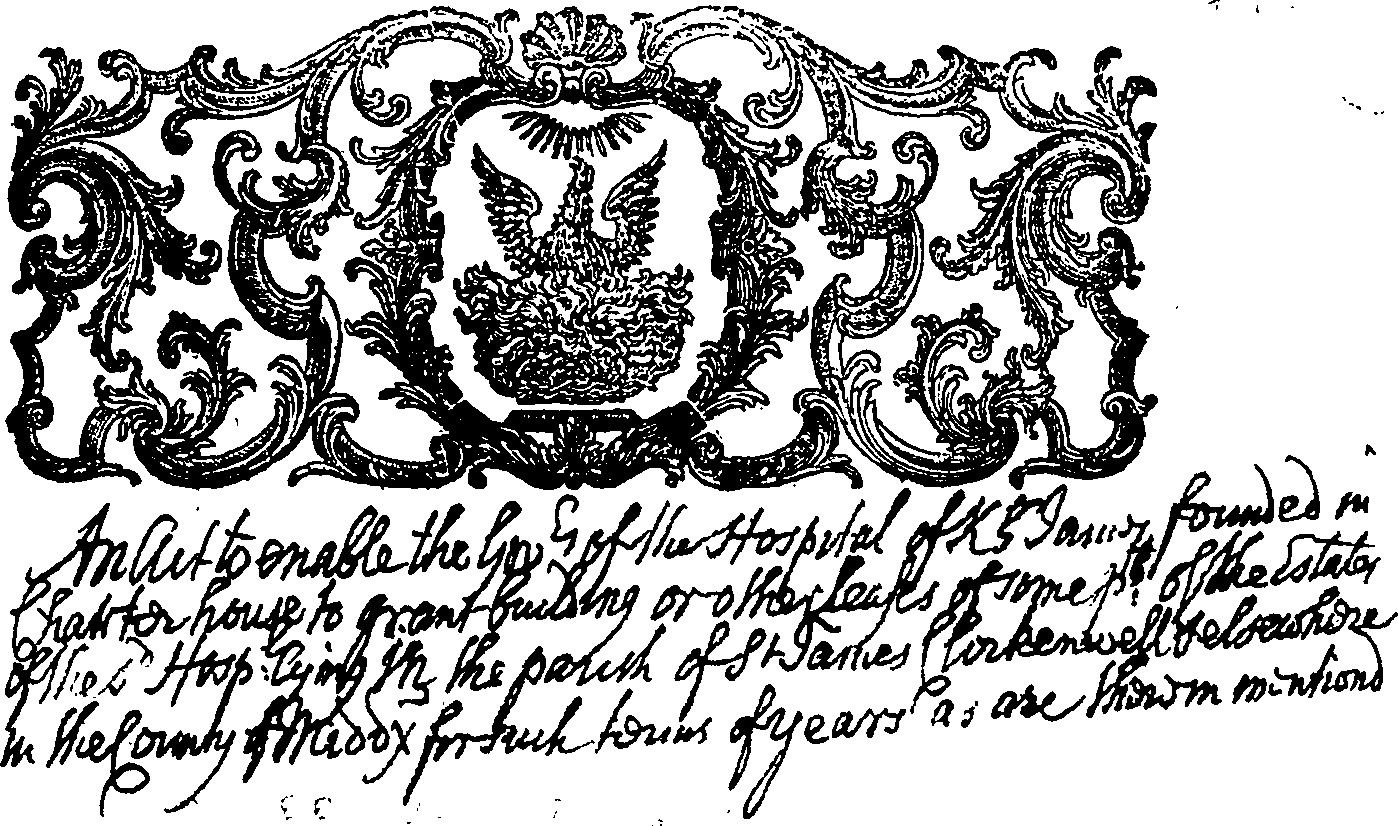 An Act to enable the Gov.rs of the Hospital of Kg James founded in
Charter house to grant building or other Leases of some pts. of the Estates
of the sd Hosp. lying in the parish of St James Clerkenwell & elsewhere
in the County of Middx for such terms of years as are therein mentiond